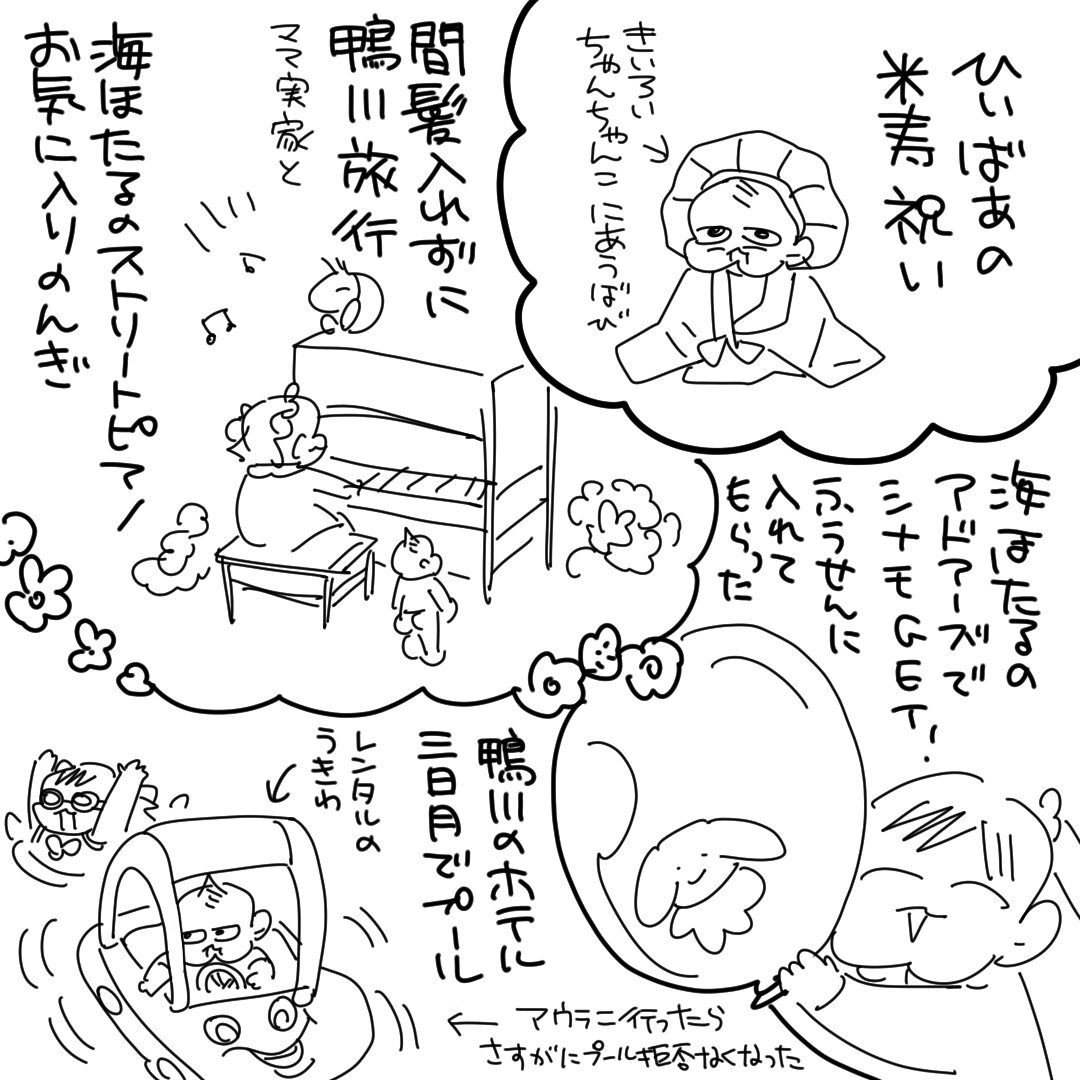 ひいばあの
米寿祝い
きいろい
ちゃんちゃんこにあうばび
間髪入れずに
鴨川旅行
ママ実家と
海ほたるのストリートピアノ
お気に入りのんぎ
海ほたるの
アドアーズで
シナモGET!
ふうせんに
入れて
もらった
鴨川のホテル
三日月でプール
レンタルの
うきわ
マウラニ行ったら
さすがにプール拒否なくなった